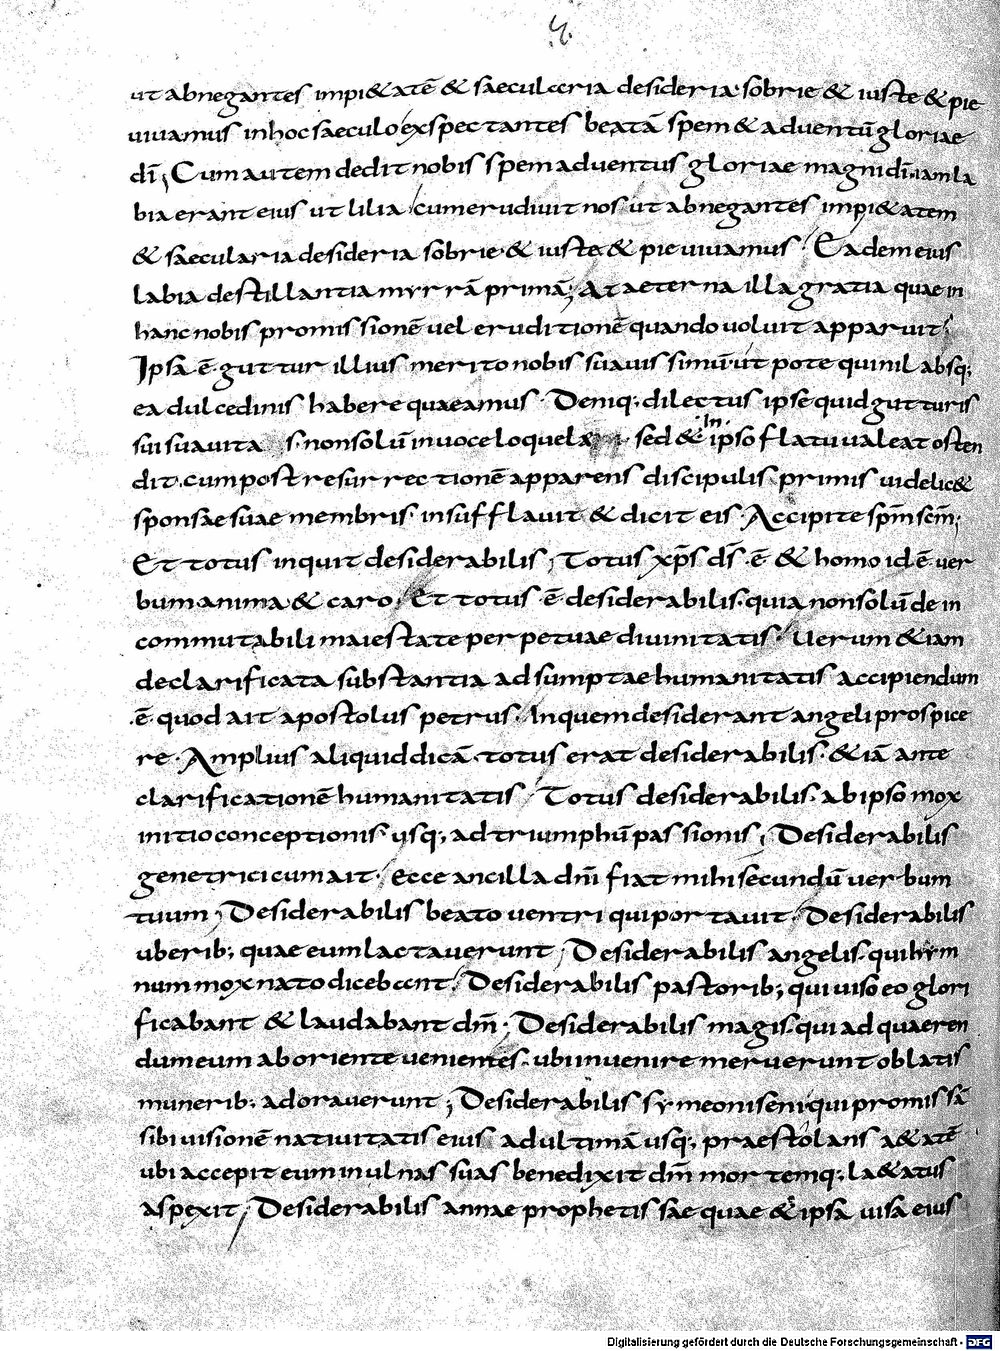 ut abnegantes impi&atē & saecularia desideria sobrie & iuste & pie
uiuamus inhoc saeculo exspectantes beatā spem & aduentū gloriae
dī; Cum autem dedit nobis spem aduentus gloriae magni dī. iam la
bia erant eius ut lilia cum erudiuit nos ut abnegantes impi&atem
& saecularia desideria sobrie & iuste & pie uiuamus. Eadem eius
labia destillantia myrrā primā; At aeterna illa gratia quae in
hanc nobis promissionē uel eruditionē quando uoluit apparuit.
Ipsa ē guttur illius merito nobis suauis simū. ut pote qui nil absq;
ea dulcedinis habere quaeamus. Deniq; dilectus ipse quid gutturis
sui suauita s. non solū in uoce loquelae sed & in ipso flatu ualeat osten
dit. cum post resurrectionē apparens discipulis primis uidelic&
sponsae suae membris insufflauit & dicit eis. Accipite spm̄ scm̄;
Et totus inquit desiderabilis; Totus xp̄s ds̄ ē & homo id ē uer
bum anima & caro; Et totus ē desiderabilis. quia non solū de in
commutabili maiestate perpetuae diuinitatis. Uerum &iam
declarificata substantia adsumptae humanitatis accipiendum
ē quod ait apostolus petrus. Inquem desiderant angeli prospice
re. Amplius aliquid dicā. totus erat desiderabilis. &iā ante
clarificationē humanitatis. Totus desiderabilis. ab ipso mox
initio conceptionis usq; ad triumphū passionis; Desiderabilis
genetrici cum ait. Ecce ancilla dnī fiat mihi secundū uerbum
tuum; Desiderabilis beato uentri qui portauit. Desiderabilis
uberib; quae eum lactauerunt; Desiderabilis angelis. qui hym
num mox nato dicebant. Desiderabilis pastorib; qui uiso eo glori
ficabant & laudabant dm̄; Desiderabilis magis. qui ad quaeren
dum eum ab oriente uenientes. ubi inuenire meruerunt oblatis
munerib; adorauerunt; Desiderabilis symeoni seni qui promissā
sibi uisionē natiuitatis eius ad ultimā usq; praestolans a&atē
ubi accepit eum in ulnas suas benedixit dm̄ mortemq; la&atus
aspexit; Desiderabilis annae prophetissae quae & ipsa uisa eius
Digitalisierung gefördert durch die Deutsche Forschungsgemeinschaft - DFG